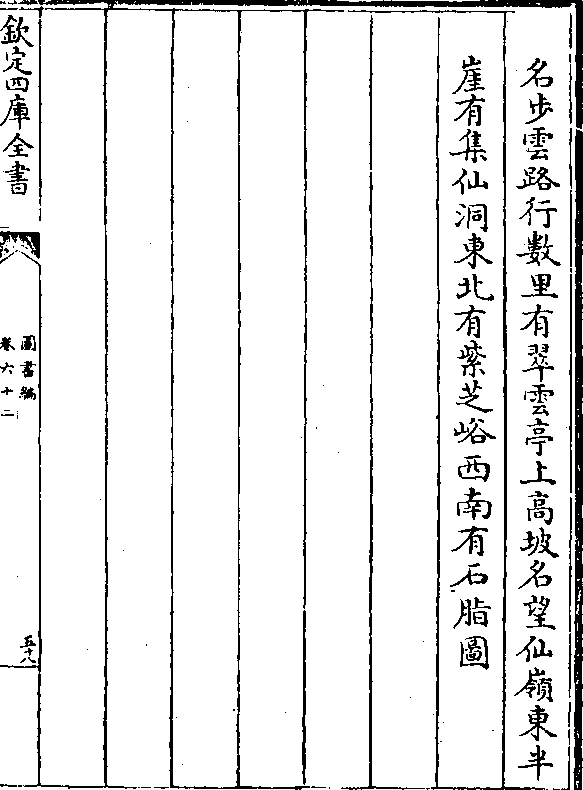 名步雲路行數里有翠雲亭上高坡名望仙嶺東半
崖有集仙洞東北有紫芝峪西南有石脂圖
欽定四庫全書
圖書編
卷六十二
五十八